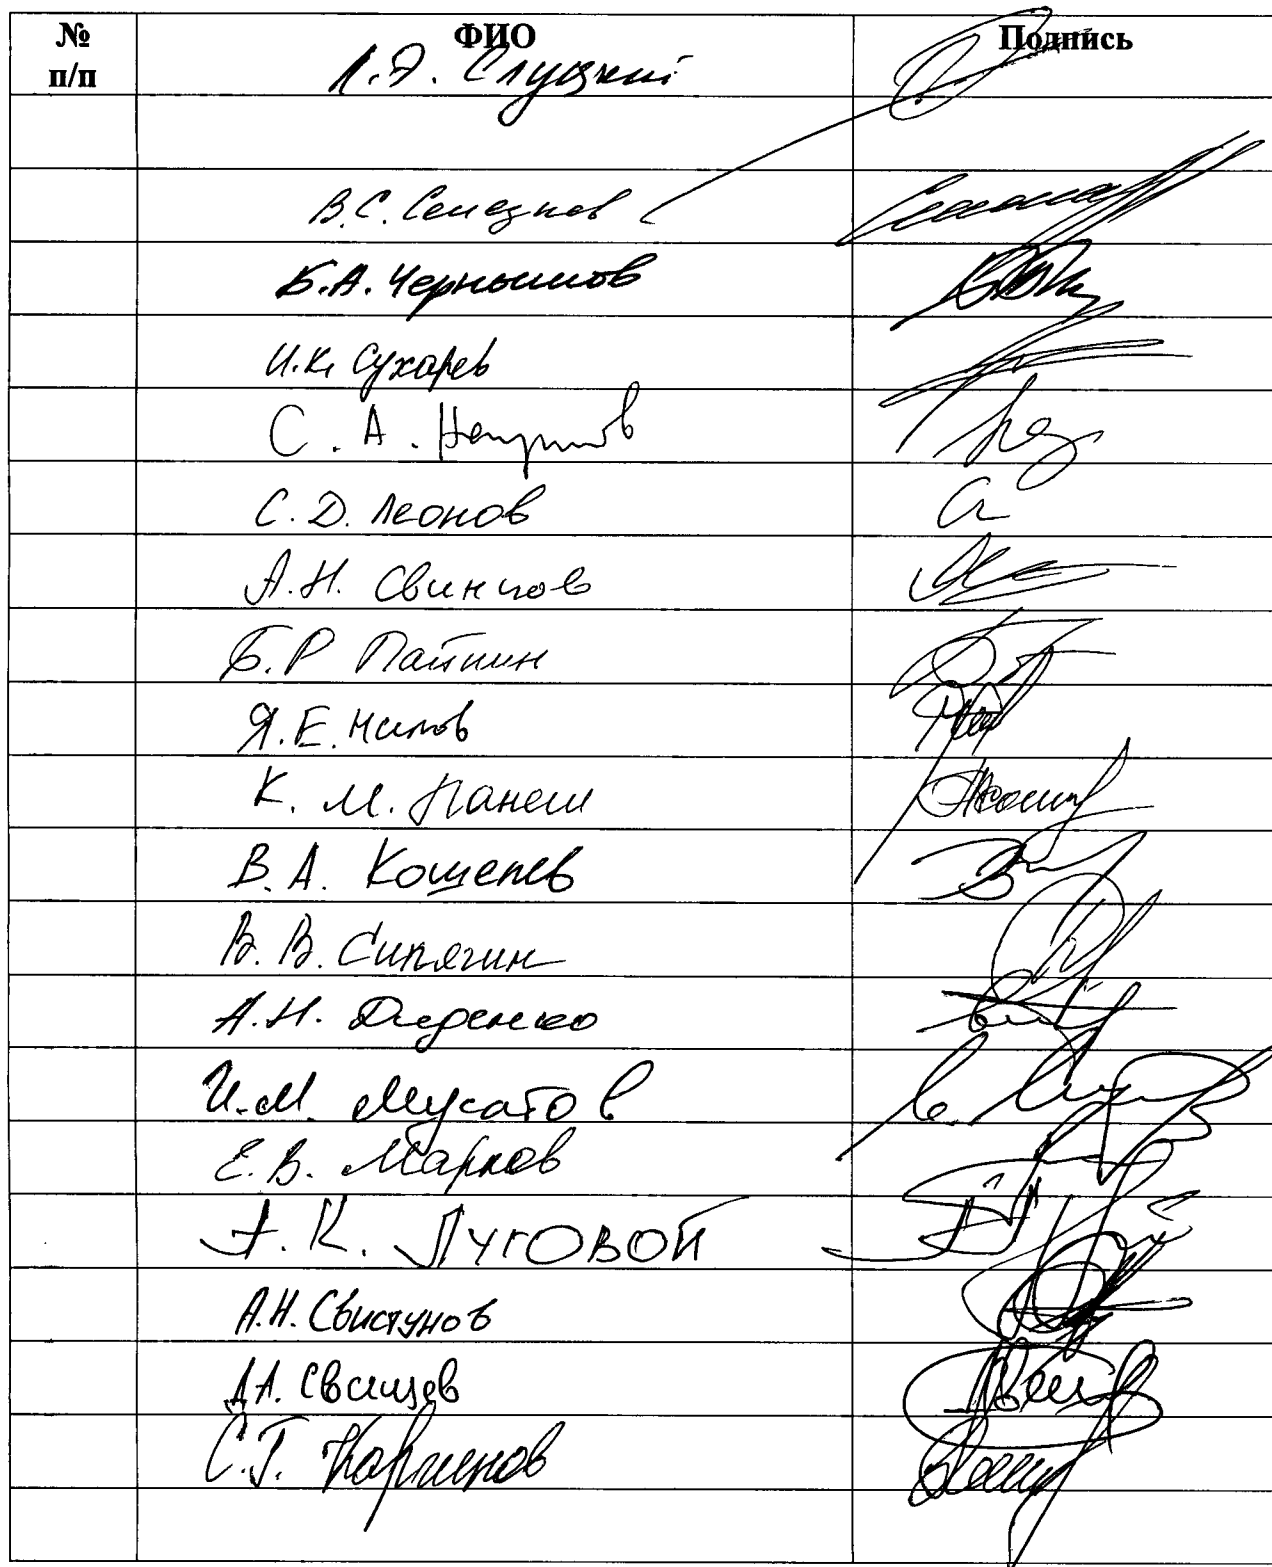 № п/п ФИО Подпись
Л.Э. Слуцкий
В.С. Селезнев
Б.А. Чернышов
И.К. Сухарев
С. А. Наумов
С.Д. Леонов
А.Н. Свинцов
Б.Р Пайкин
Я.Е. Нилов
К. М. Панеш
В.А. Кошелев
В.В. Сипягин
А.Н. Диденко
И.М. Мусатов
Е.В. Марков
А.К. Луговой
А.Н. Свистунов
Д.А. Свищев
С.Г. Каргинов